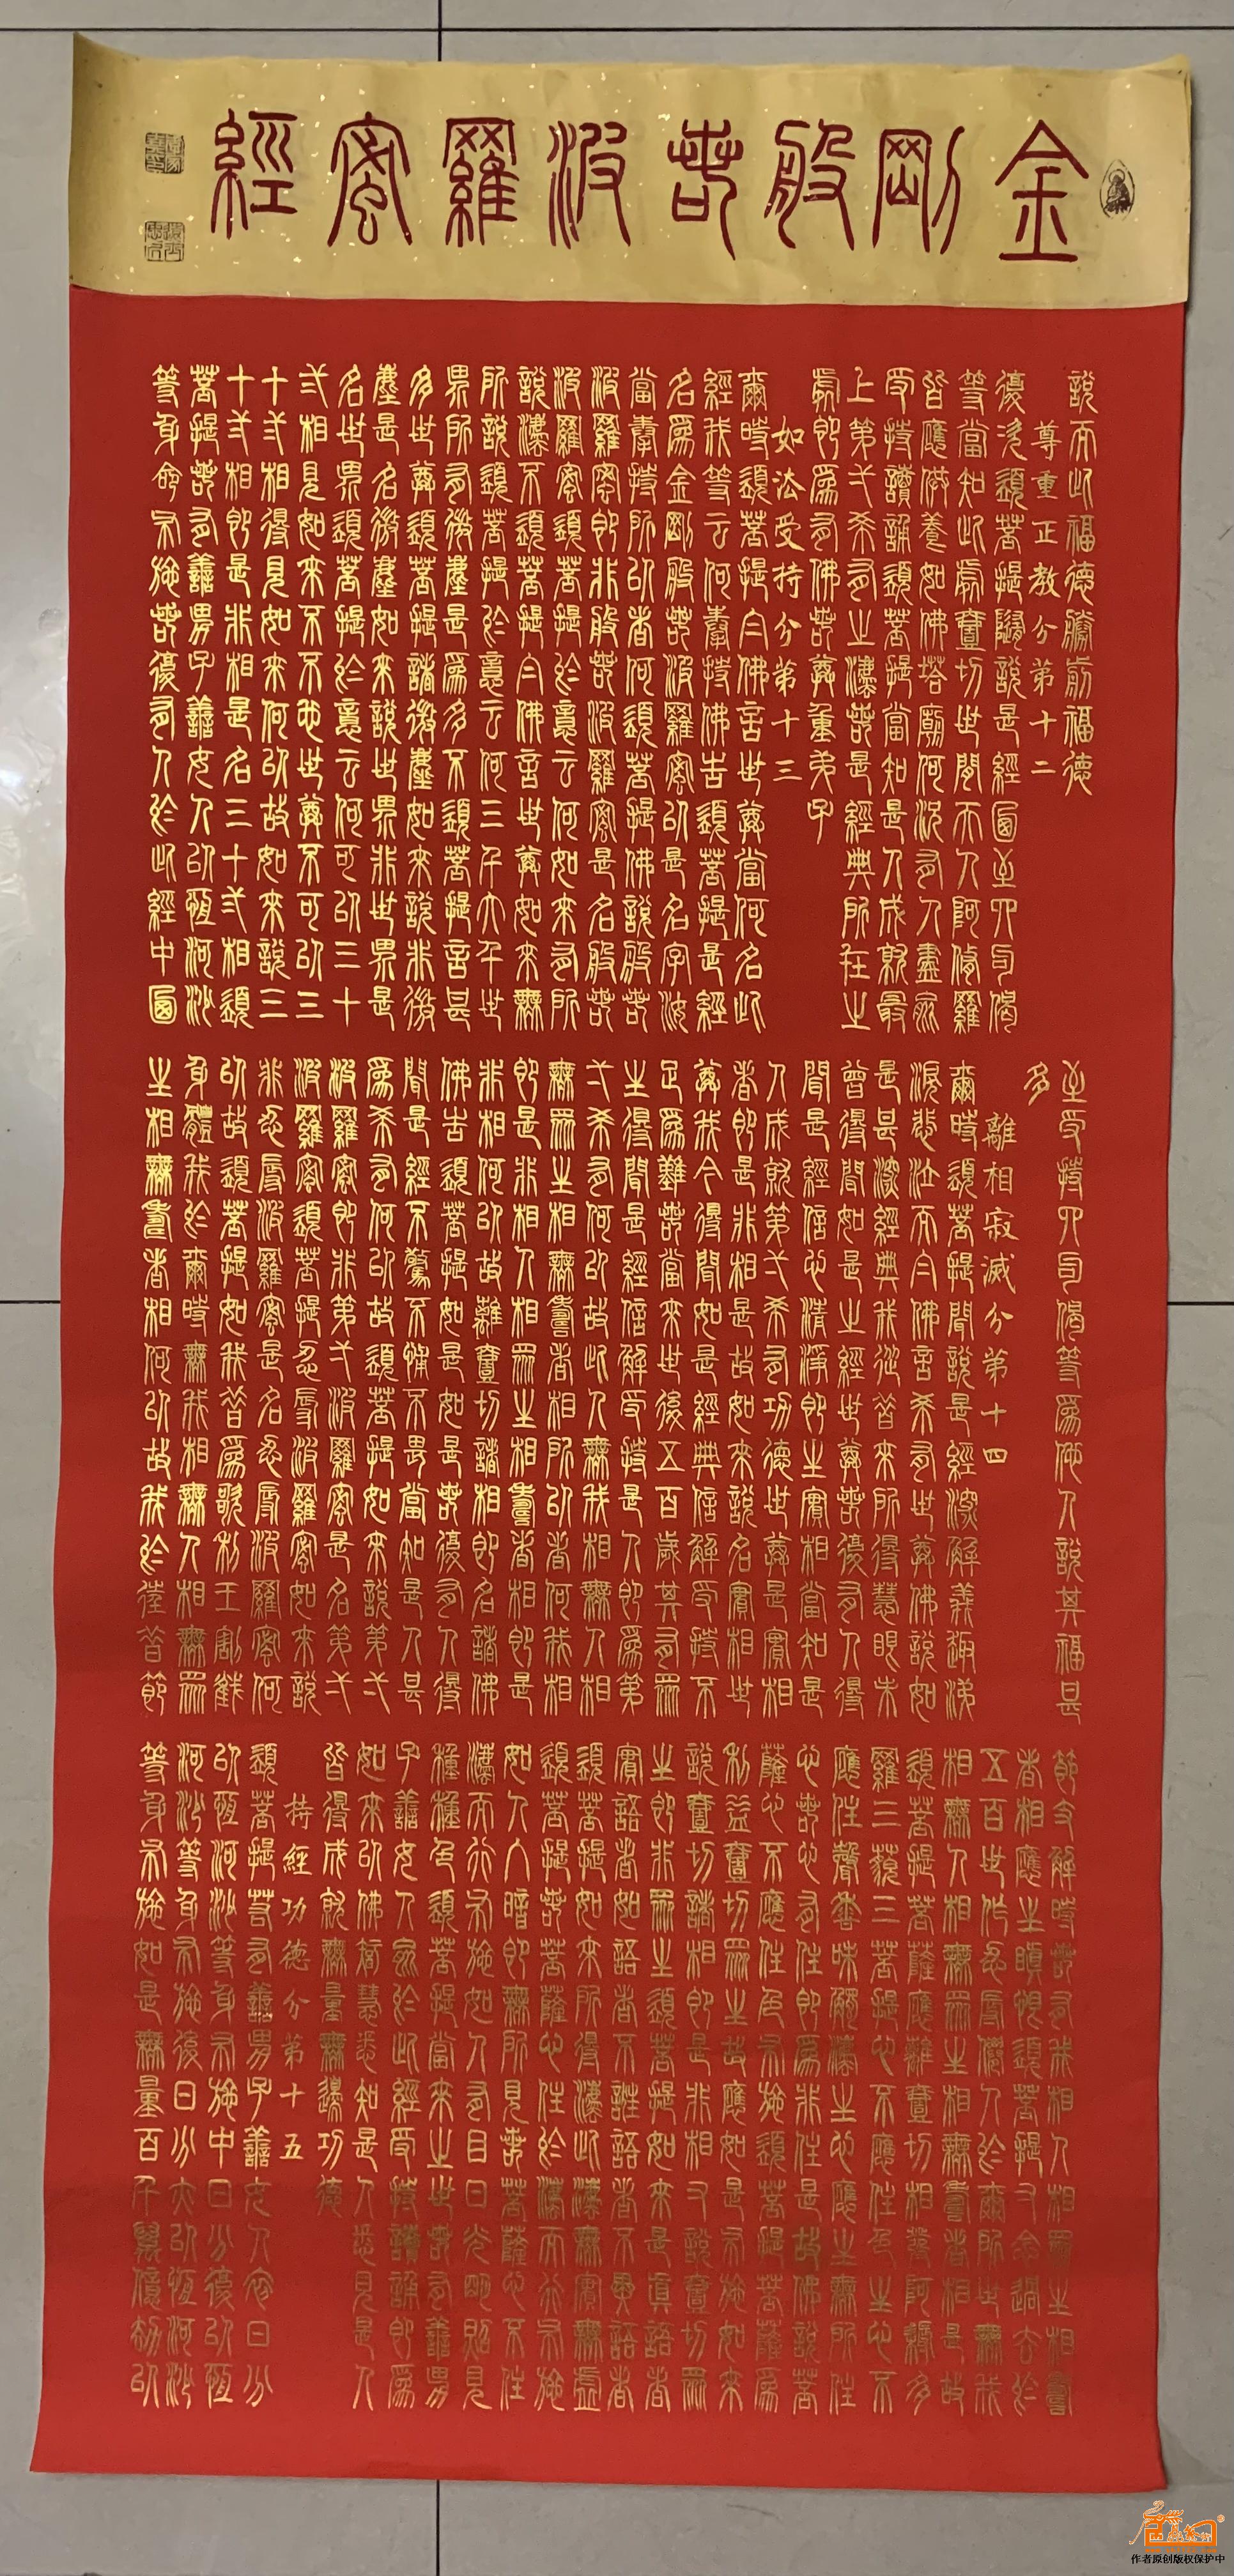 金剛般若波羅蜜經
說而此福德勝前福德
尊重正教分第十二
復次須菩提隨說是經乃至四句偈
等當知此處一切世間天人阿修羅
皆應供養如佛塔廟何況有人盡能
受持讀誦須菩提當知是人成就最
上第一希有之法若是經典所在之
處即為有佛若尊重弟子
如法受持分第十三
爾時須菩提白佛言世尊當何名此
經我等云何奉持佛告須菩提是經
名為金剛般若波羅蜜以是名字汝
當奉持所以者何須菩提佛說般若
波羅蜜即非般若波羅蜜是名般若
波羅蜜須菩提於意云何如來有所
說法不須菩提白佛言世尊如來無
所說須菩提於意云何三千大千世
界所有微塵是為多不須菩提言甚
多世尊須菩提諸微塵如來說非微
塵是名微塵如來說世界非世界是
名世界須菩提於意云何可以三十
二相見如來不不也世尊不可以三
十二相得見如來何以故如來說三
十二相即是非相是名三十二相須
菩提若有善男子善女人以恒河沙
等身命布施若復有人於此經中乃
至受持四句偈等為他人說其福甚
多
離相寂滅分第十四
爾時須菩提聞說是經深解義趣涕
淚悲泣而白佛言希有世尊佛說如
是甚深經典我從昔來所得慧眼未
曾得聞如是之經世尊若復有人得
聞是經信心清淨即生實相當知是
人成就第一希有功德世尊是實相
者即是非相是故如來說名實相世
尊我今得聞如是經典信解受持不
足為難若當來世後五百歲其有眾
生得聞是經信解受持是人即為第
一希有何以故此人無我相無人相
無眾生相無壽者相所以者何我相
即是非相人相眾生相壽者相即是
非相何以故離一切諸相即名諸佛
佛告須菩提如是如是若復有人得
聞是經不驚不怖不畏當知是人甚
為希有何以故須菩提如來說第一
波羅蜜即非第一波羅蜜是名第一
波羅蜜須菩提忍辱波羅蜜如來說
非忍辱波羅蜜是名忍辱波羅蜜何
以故須菩提如我昔為歌利王割截
身體我於爾時無我相無人相無眾
生相無壽者相何以故我於往昔節
節支解時若有我相人相眾生相壽
者相應生瞋恨須菩提又念過去於
五百世作忍辱仙人於爾所世無我
相無人相無眾生相無壽者相是故
須菩提菩薩應離一切相發阿耨多
羅三藐三菩提心不應住色生心不
應住聲香味觸法生心應生無所住
心若心有住即為非住是故佛說菩
薩心不應住色布施須菩提菩薩為
利益一切眾生故應如是布施如來
說一切諸相即是非相又說一切眾
生即非眾生須菩提如來是真語者
實語者如語者不誑語者不異語者
須菩提如來所得法此法無實無虛
須菩提若菩薩心住於法而行布施
如人入暗即無所見若菩薩心不住
法而行布施如人有目日光明照見
種種色須菩提當來之世若有善男
子善女人能於此經受持讀誦即為
如來以佛智慧悉知是人悉見是人
皆得成就無量無邊功德
持經功德分第十五
須菩提若有善男子善女人初日分
以恒河沙等身布施中日分復以恒
河沙等身布施後日分亦以恒河沙
等身布施如是無量百千萬億劫以
作者原创版权保护中